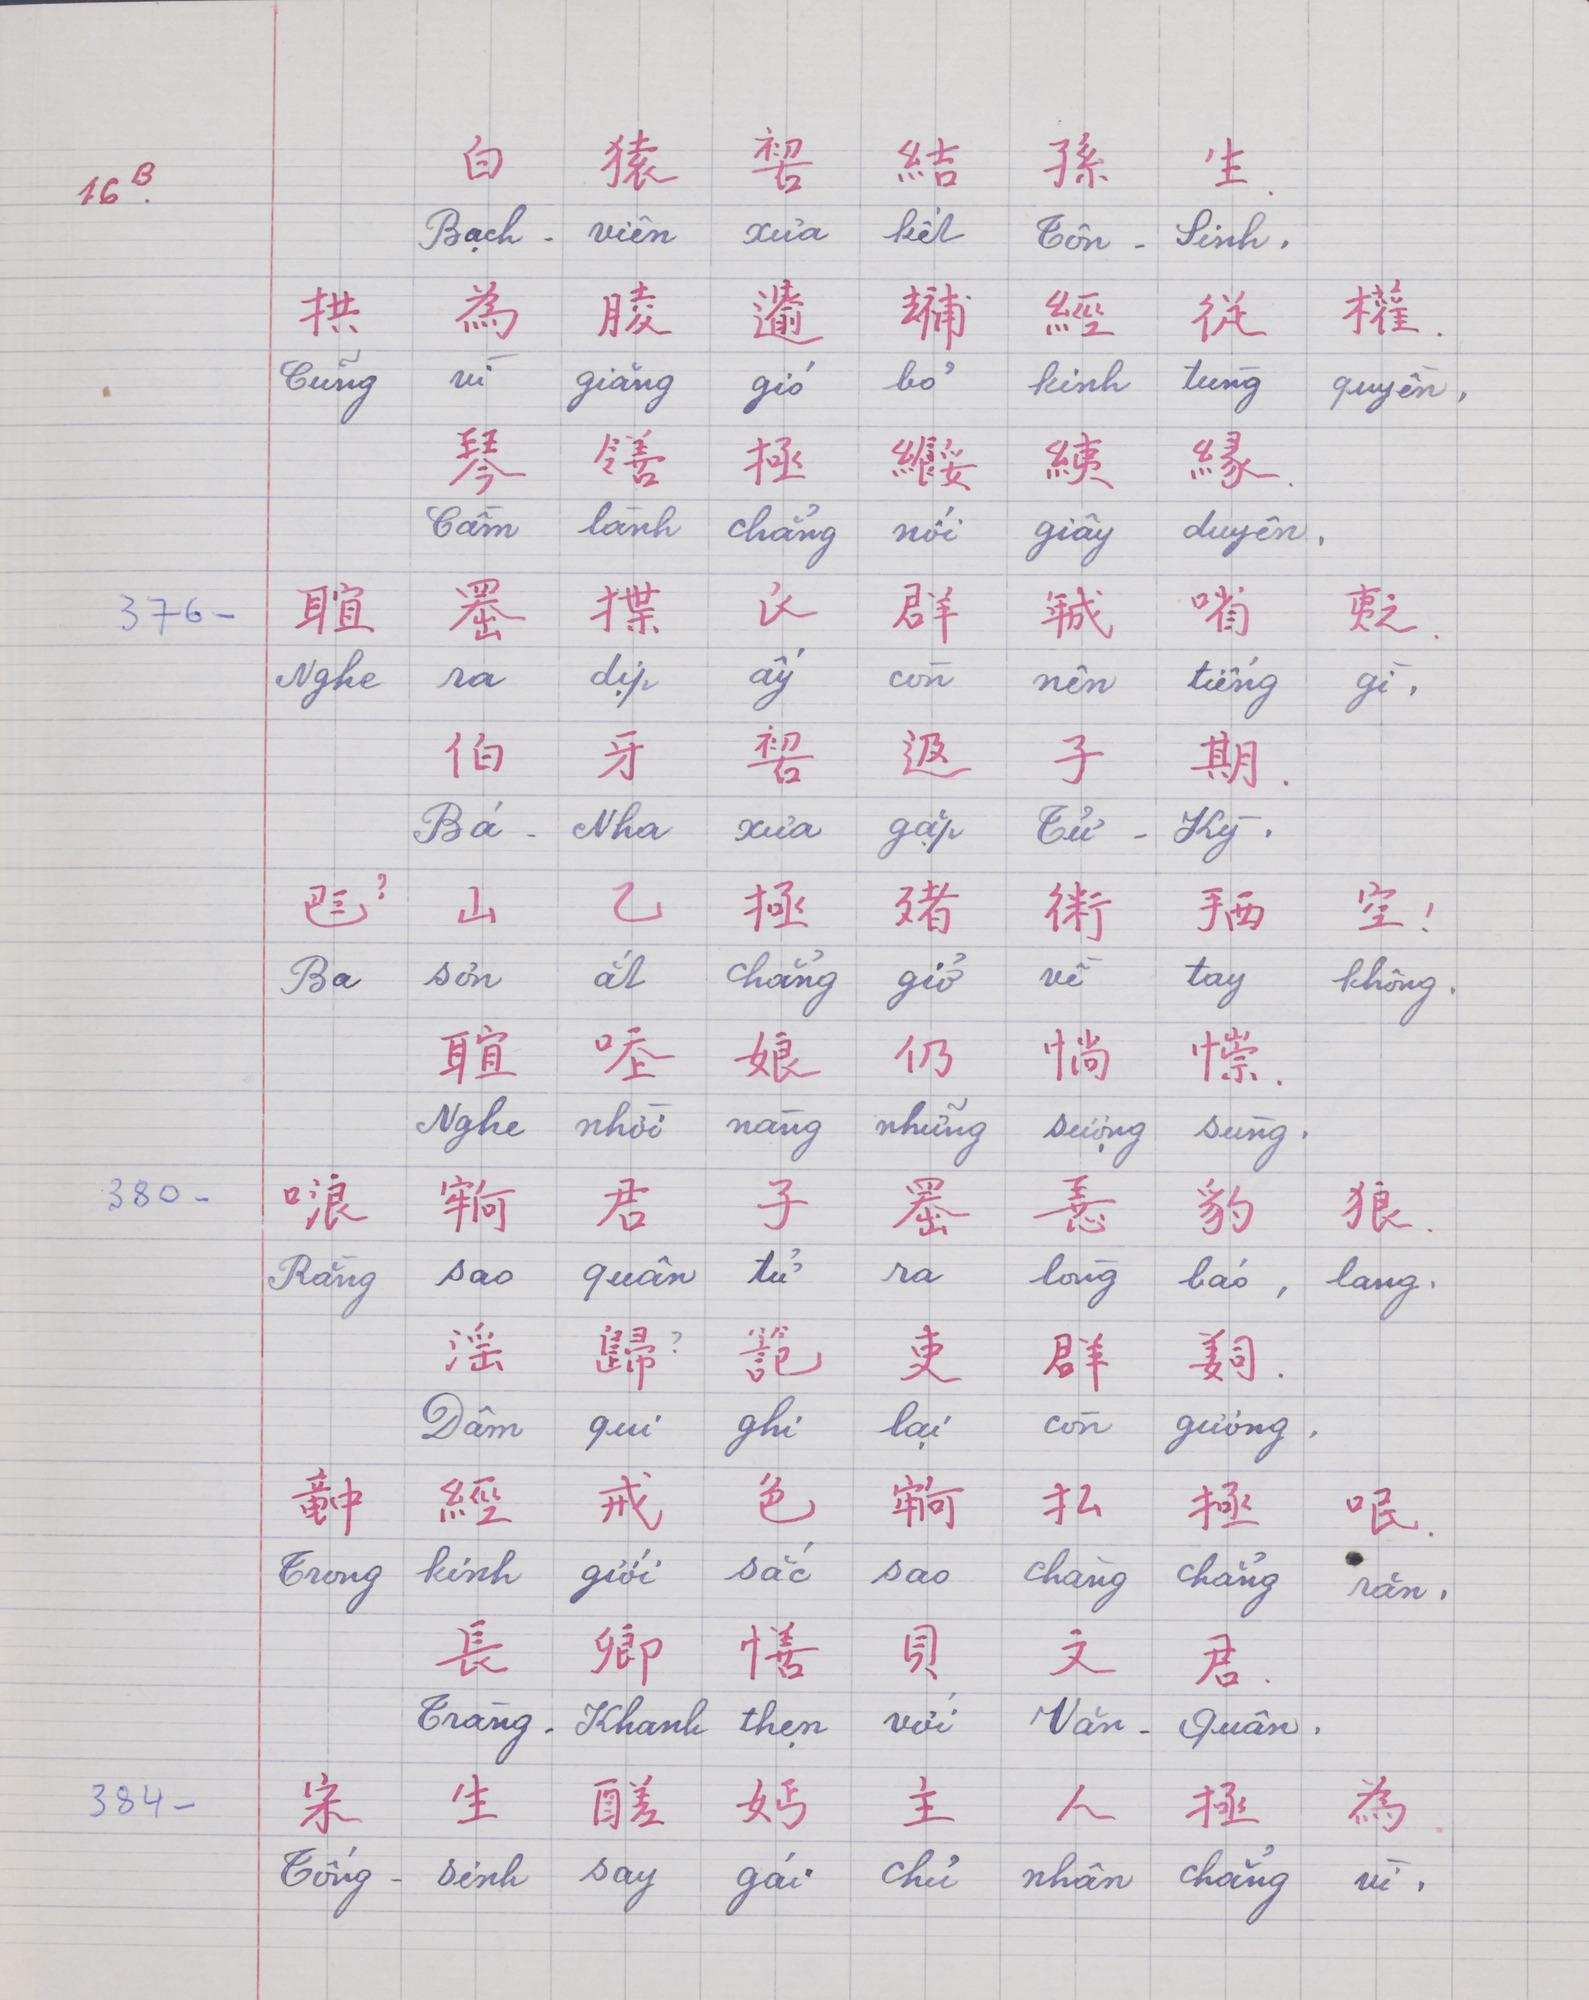 16B.
白 猿 𠸗 結 孫 生.
Bạch - viên xưa kết Tôn - Sinh.
拱 為 𦝄 𫗄 𠬃 經 從 權.
Cũng vì giăng gió bỏ kinh tùng quyền.
琴 𫅜 極 𦀼 𦀊 緣.
Cầm lành chẳng nối giây duyên.
376- 𦖑 𦋦 揲 𧘇 群 𢧚 㗂 𡗶.
Nghe ra dịp ấy còn nên tiếng gì.
伯 牙 𠸗 𨔾 子 期.
Bá - Nha xưa gặp Tử - Kỳ.
? 山 乙 極 𠭤 術 𢬣 空!
Ba sơn ắt chẳng giở về tay không.
𦖑 𠳒 娘 仍 惝 𢠆.
Nghe nhời nàng những sượng sùng.
380- 哴 𫳵 君 子 𦋦 𢚸 豹 狼.
Rằng sao quân tử ra lòng báo, lang.
淫 歸? 𥱬 吏 群 𦎛.
Dâm qui ghi lại còn gương.
𥪝 經 戒 色 𫳵 払 極 哏.
Trong kinh giới sắc sao chàng chẳng răn.
長 卿 𢢆 貝 文 君.
Tràng - Khanh thẹn với Văn - Quân.
384- 宋 生 醝 𡛔 主 人 極 為
Tống - sinh say gái chủ nhân chẳng vì.